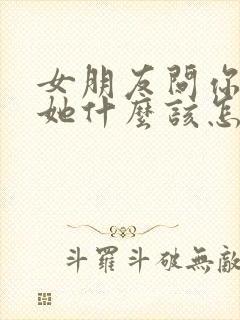 女朋友問你
她什麼該怎
斗羅斗破無敵